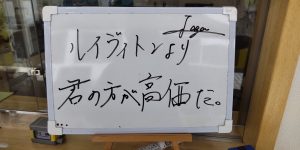 ルイヴィトンより
君の方が高価だ。